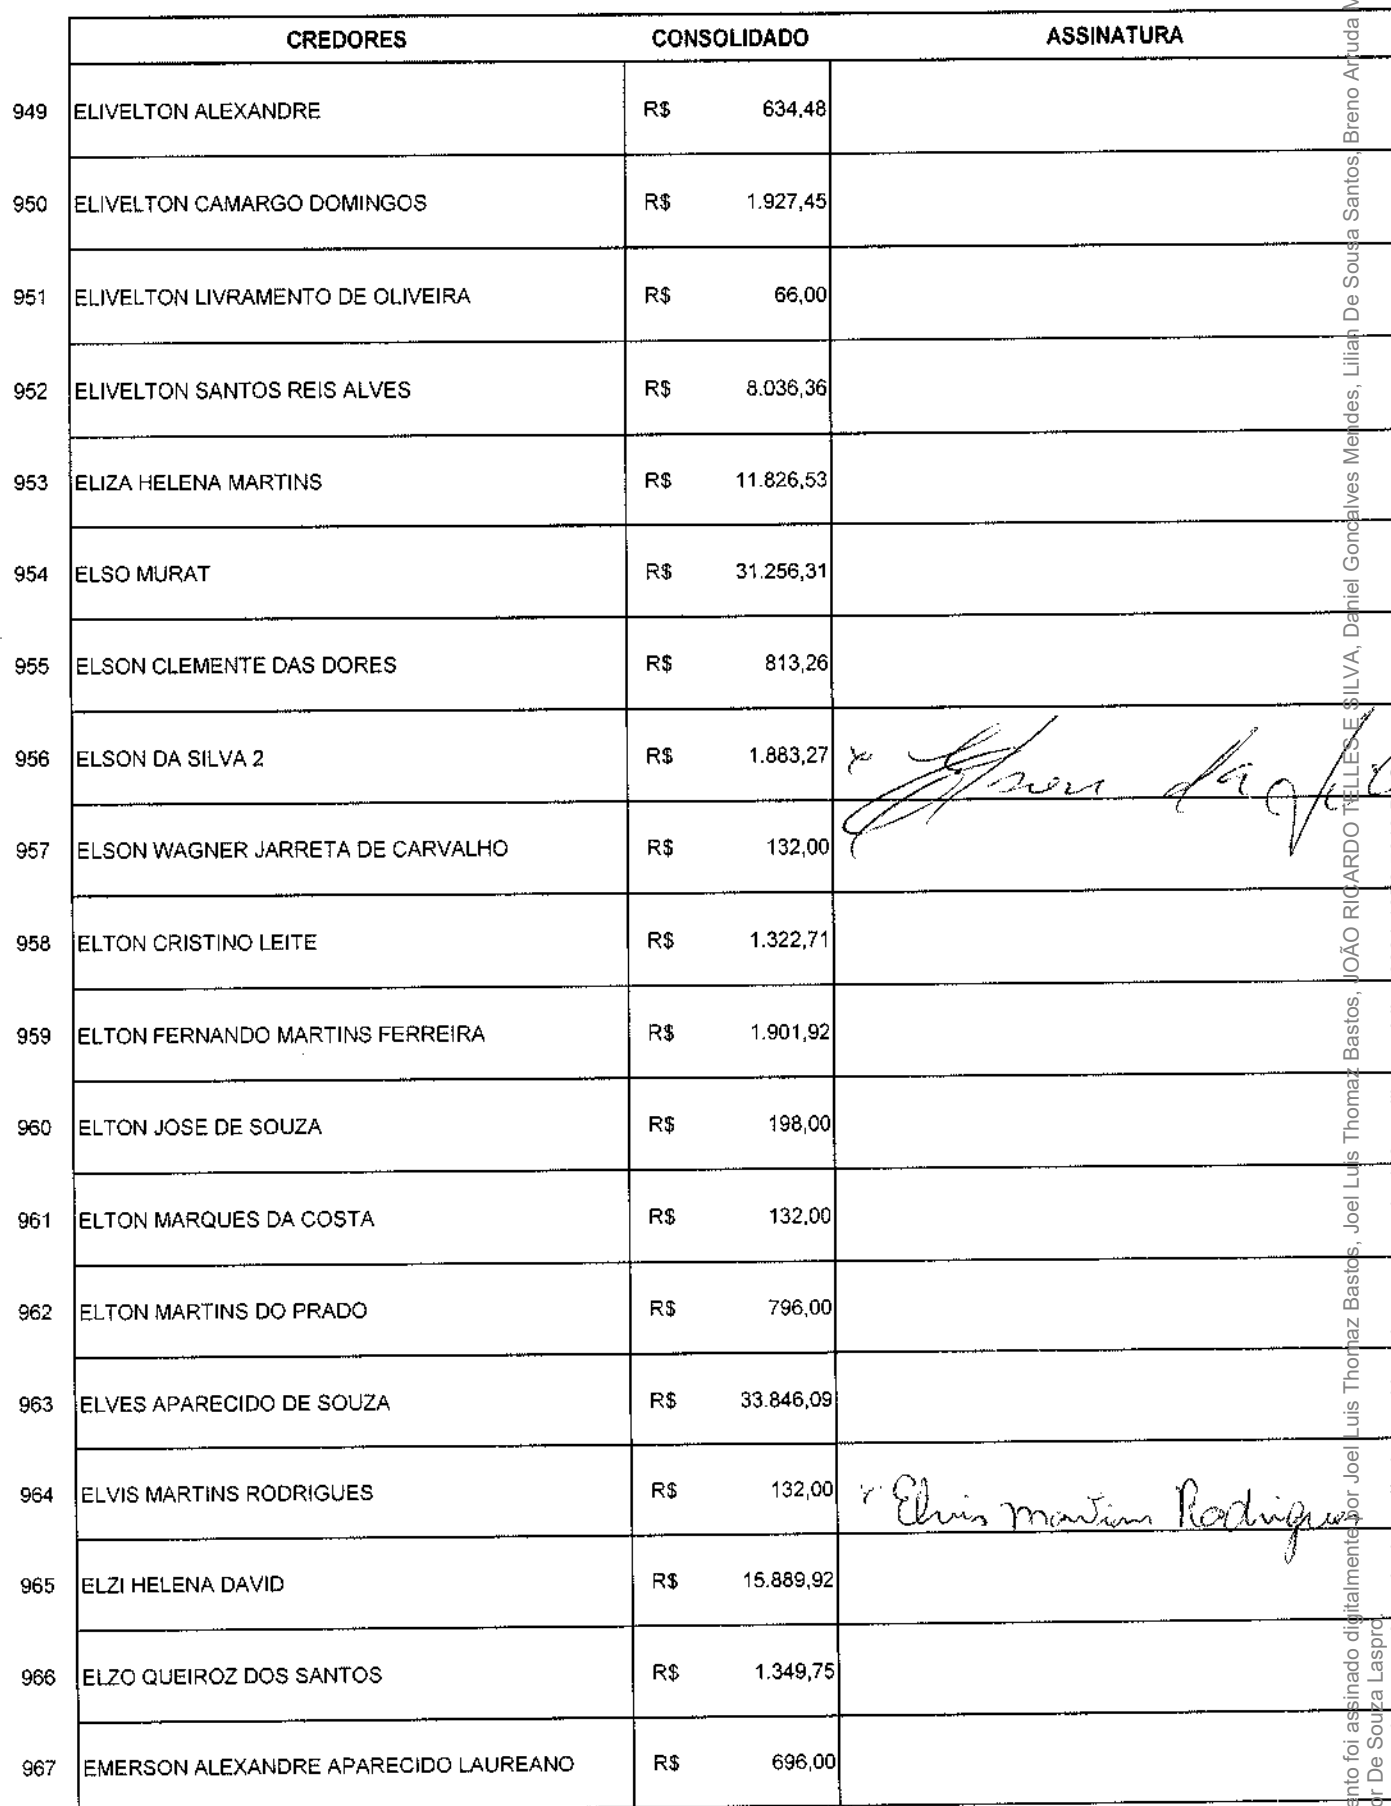 CREDORES CONSOLIDADO ASSINATURA
949 ELIVELTON ALEXANDRE R$ 634,48
950 ELIVELTON CAMARGO DOMINGOS R$ 1.927,45
951 ELIVELTON LIVRAMENTO DE OLIVEIRA R$ 66,00
952 ELIVELTON SANTOS REIS ALVES R$ 8.036,36
953 ELIZA HELENA MARTINS R$ 11.826,53
954 ELSO MURAT R$ 31.256,31
955 ELSON CLEMENTE DAS DORES R$ 813,26
956 ELSON DA SILVA 2 R$ 1.883,27 x Elson da Sil
957 ELSON WAGNER JARRETA DE CARVALHO R$ 132,00
958 ELTON CRISTINO LEITE R$ 1.322,71
959 ELTON FERNANDO MARTINS FERREIRA R$ 1.901,92
960 ELTON JOSE DE SOUZA R$ 198,00
961 ELTON MARQUES DA COSTA R$ 132,00
962 ELTON MARTINS DO PRADO R$ 796,00
963 ELVES APARECIDO DE SOUZA R$ 33.846,09
964 ELVIS MARTINS RODRIGUES R$ 132,00 x Elvis Martins Rodrigues
965 ELZI HELENA DAVID R$ 15.889,92
966 ELZO QUEIROZ DOS SANTOS R$ 1.349,75
967 EMERSON ALEXANDRE APARECIDO LAUREANO R$ 696,00
ento foi assinado digitalmente por Joel Luis Thomaz Bastos, Joel Luis Thomaz Bastos, JOÃO RICARDO TELLES E SILVA, Daniel Goncalves Mendes, Lilian De Sousa Santos, Breno Arruda M
or De Souza Laspro,